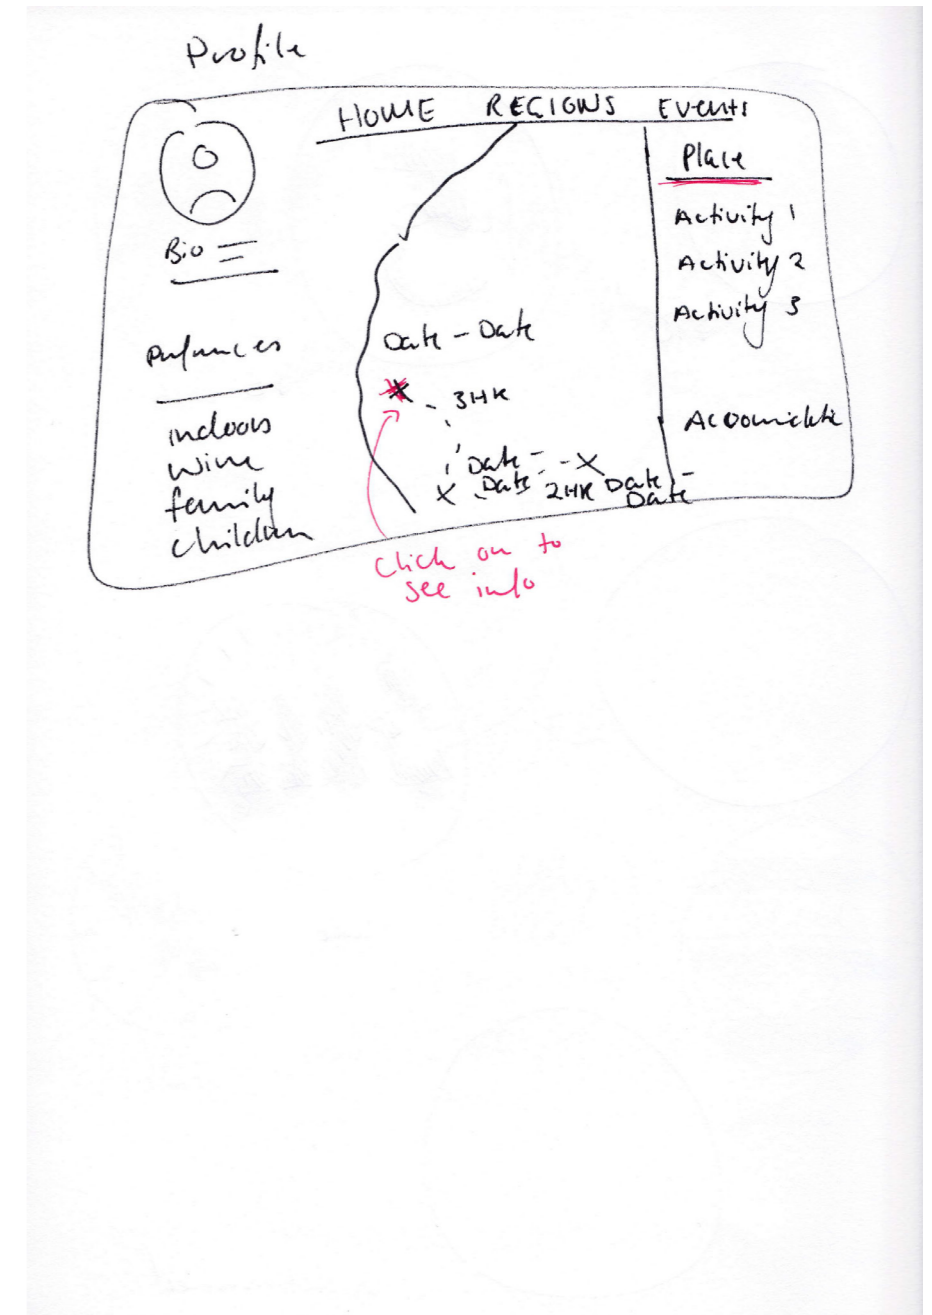 Profile
HOME REGIONS Events
Bio
Prefernces
indoors
wine
family
children
Date - Date
3HR
Date -
Date
2HR
Date -
Date
Place
Activity 1
Activity 2
Activity 3
click on to
see info